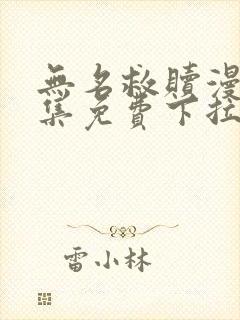 無名救贖漫
集免費下拉
雷小林